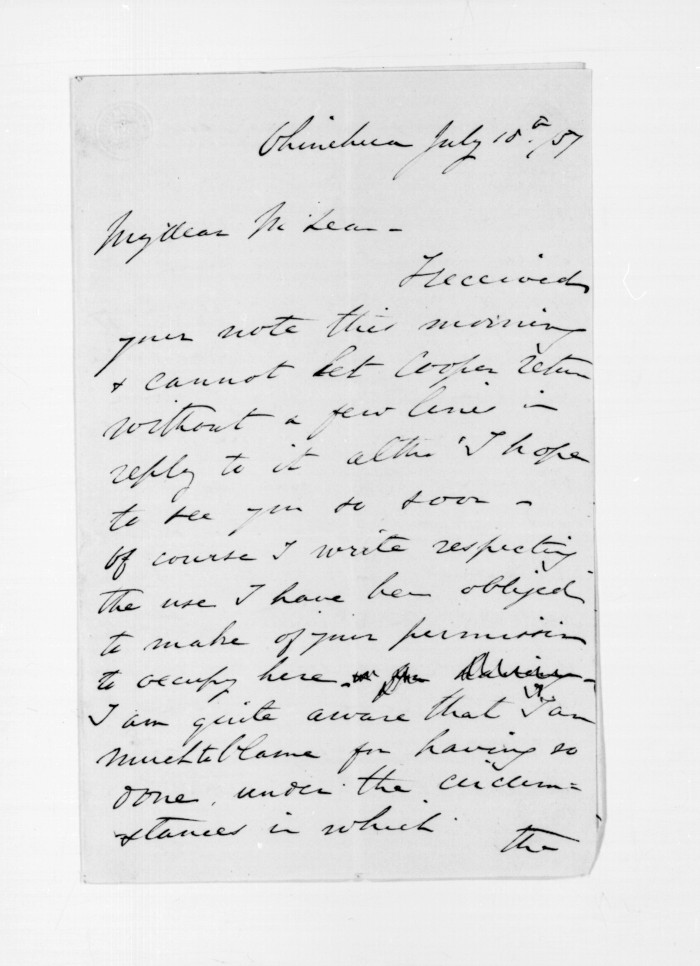 July 18th /57
My dear McLean -
I received
your note this morning
& cannot let Cooper return
without a few lines in
reply to it altho' I hope
to see you so soon -
Of course I write respecting
the use I have been obliged
to make of your permission
to occupy here
I am quite aware that I am
much to blame for having so
done, under the circum=
stances in which
the